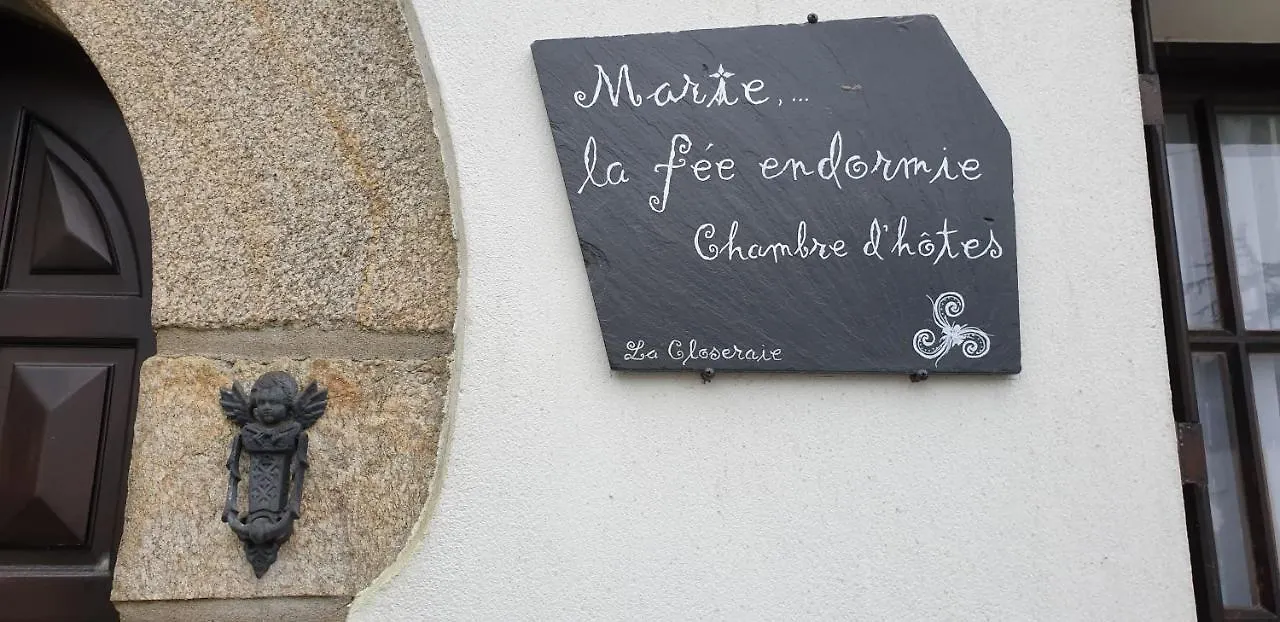 Marie,...
la fée endormie
Chambre d'hôtes
La Closeraie